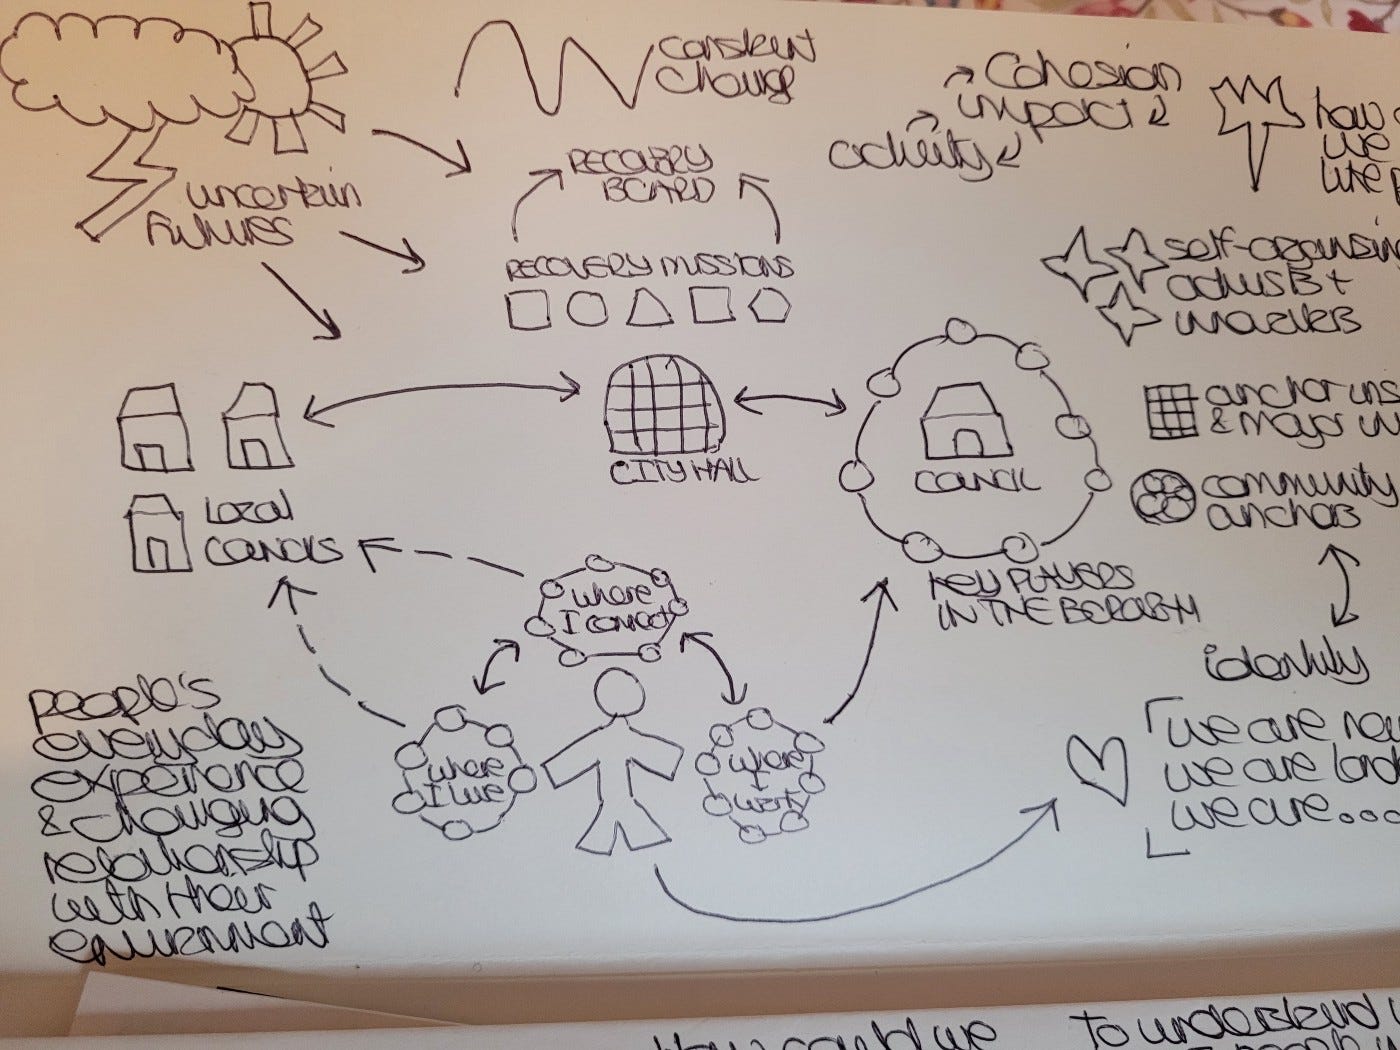 constent
change
Cohesion
impact
activity
how
we
uncertain
futures
RECOVERY
BOARD
RECOVERY MISSIONS
self-organising
activists +
markers
CITY HALL
COUNCIL
anchor ins
& major un
community
anchors
LOCAL
COUNCILS
KEY PLAYERS
IN THE BOROUGH
where
I connect
identity
people's
everyday
experience
& changing
relationship
with their
environment
where
I live
where
I
work
we are
we are lond
we are...
How could we
To understand